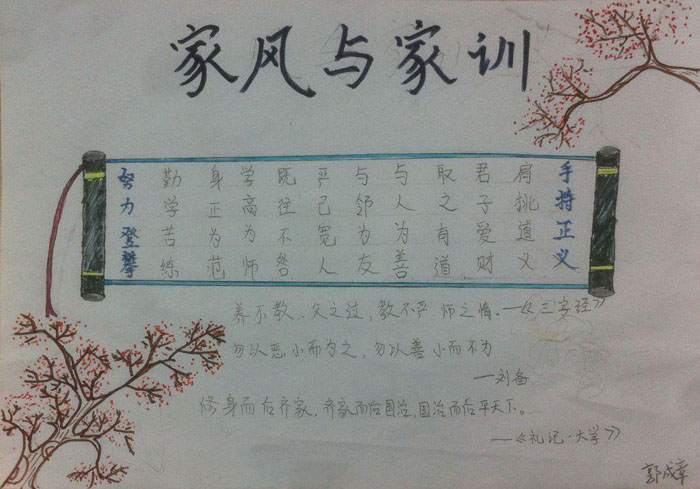 家风与家训
手持正义
肩挑道义
君子爱财
取之有道
与人为善
与邻为友
严己宽人
既往不咎
学高为师
身正为范
勤学苦练
努力登攀
养不教,父之过,教不严 师之惰。—《三字经》
勿以恶小而为之,勿以善小而不为
—刘备
修身而后齐家,齐家而后国治,国治而后平天下。
—《礼记·大学》
郭成章